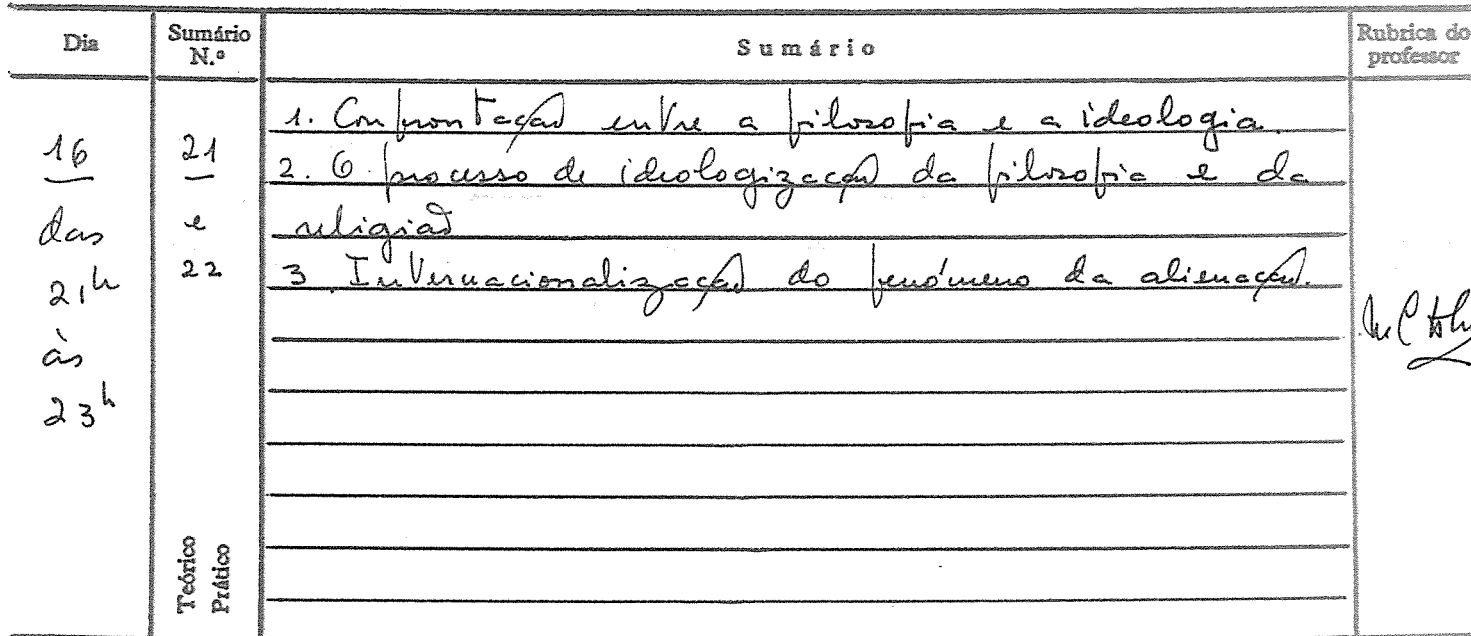 Dia
Sumário N.º
Sumário
Rubrica do professor
16
das
21h
às
23h
21
e
22
1. Confrontação entre a filosofia e a ideologia.
2. O processo de ideologização da filosofia e da
religião
3. Internacionalização do fenómeno da alienação.
Teórico
Prático